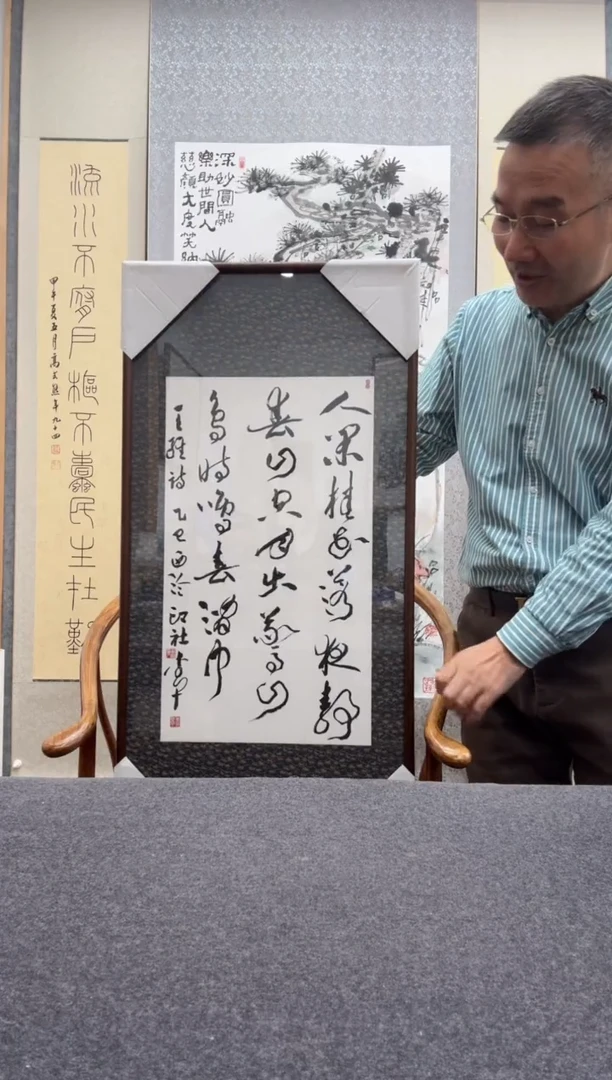 人閒桂花落夜靜
春山空月出驚山
鳥時鳴春澗中
王維詩 乙巳西泠印社
深妙圓融
樂助世間人
慈顏大度笑納
流水不腐戶樞不蠹民生在勤
甲午夏五月高式熊年九十四